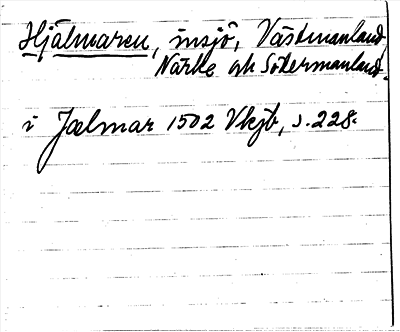 Hjälmaren, insjö, Västmanland,
Närke och Södermanland.
i Jælmar 1502 Vkjb, s. 228.